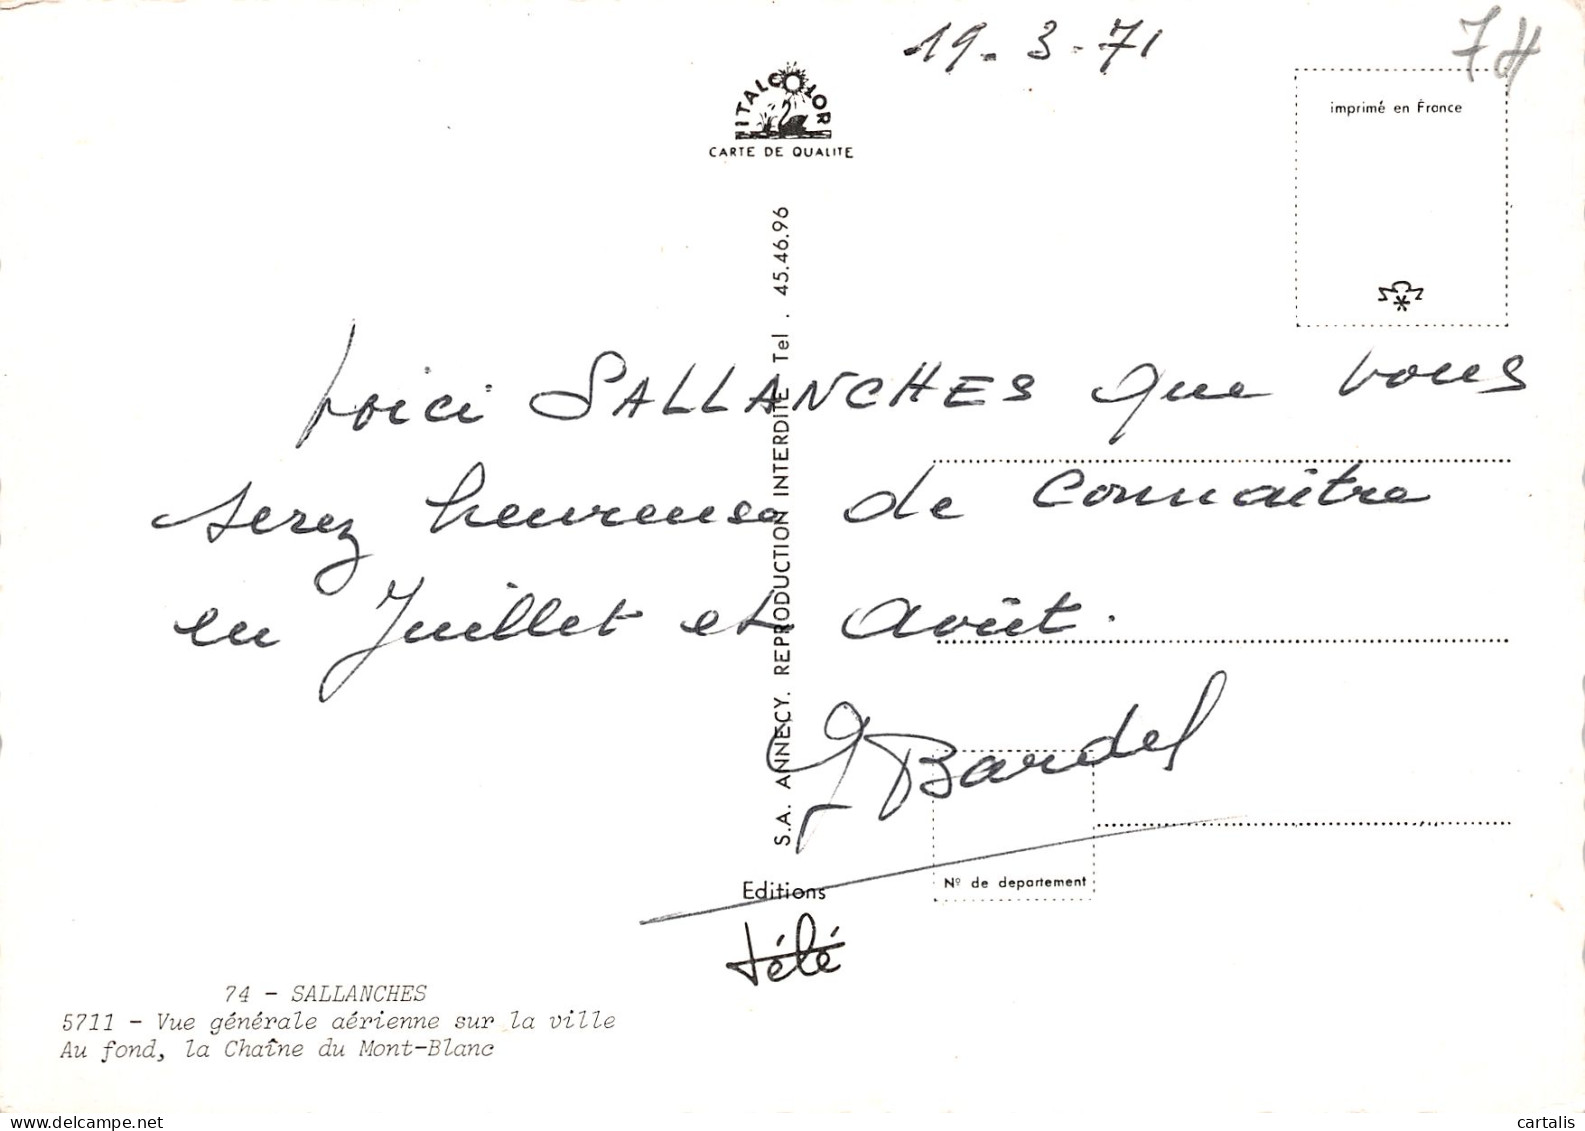 19-3-71
74
ITALCOLOR
CARTE DE QUALITE
imprimé en France
Voici SALLANCHES que vous
serez heureuse de connaitre
en Juillet et Août.
Bardel
S.A. ANNECY. REPRODUCTION INTERDITE Tel . 45.46.96
Nº de departement
Editions
télé
74 - SALLANCHES
5711 - Vue générale aérienne sur la ville
Au fond, la Chaîne du Mont-Blanc
www.delcampe.net
cartalis